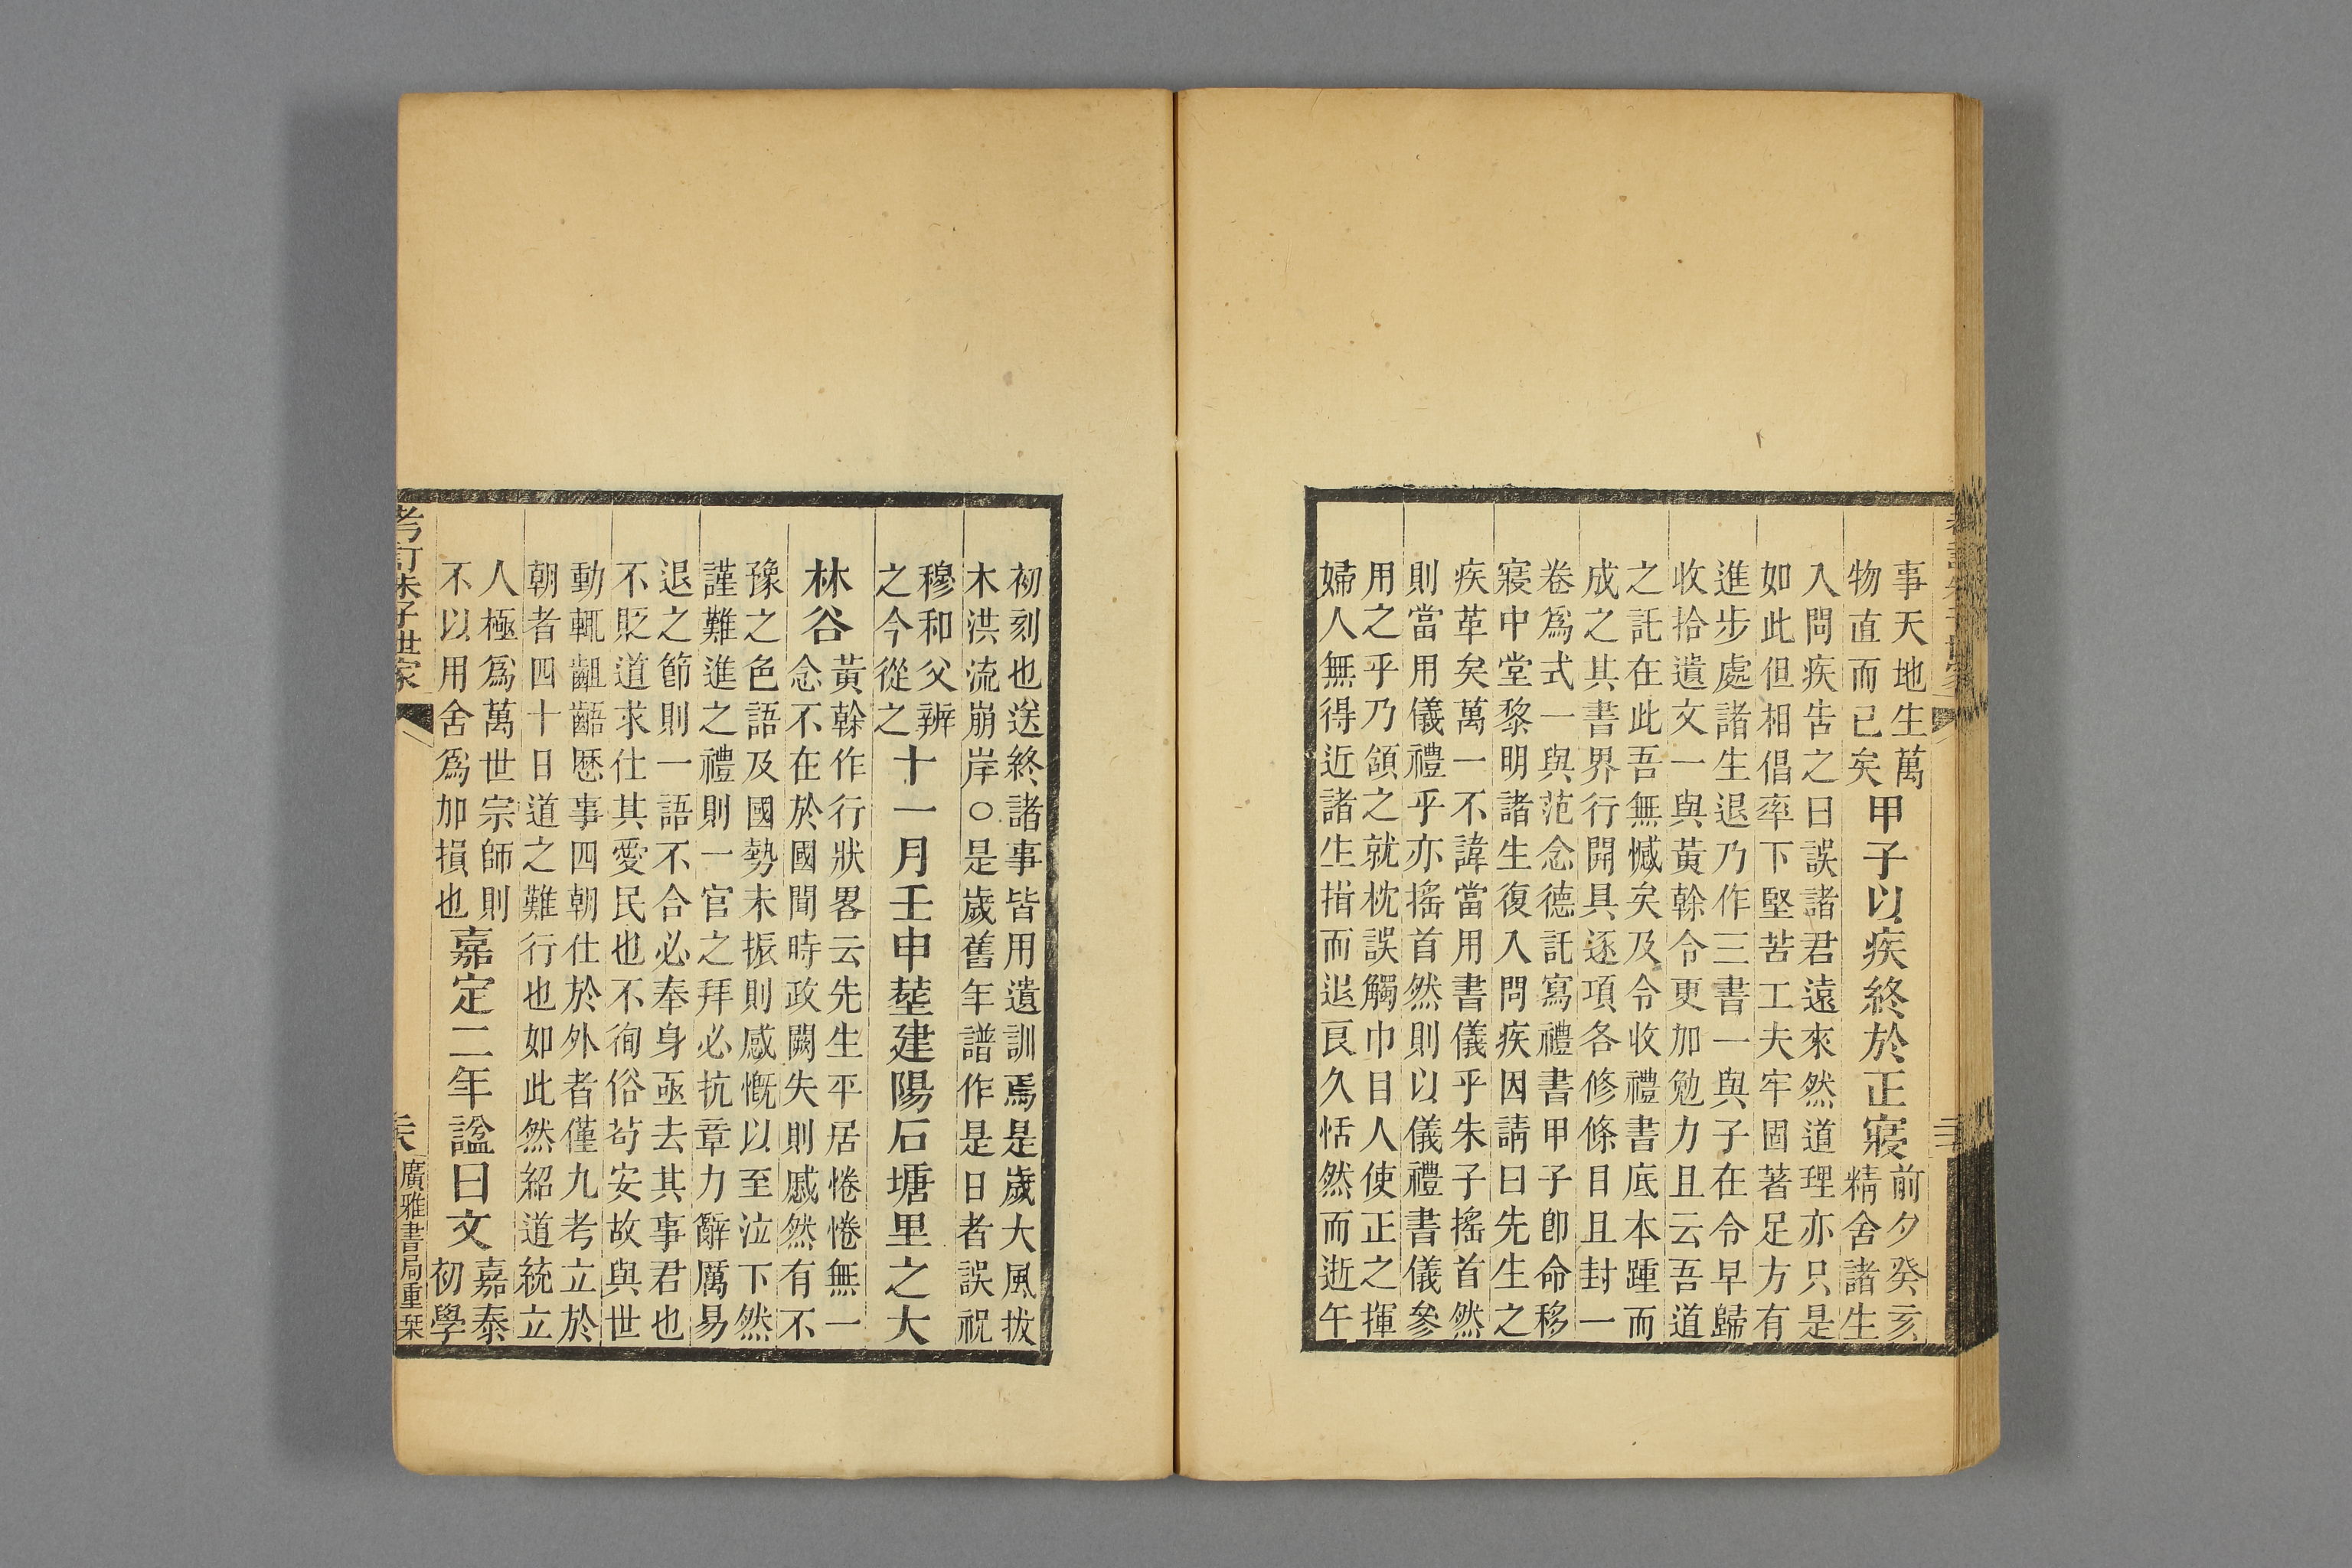 事天地生萬
物直而已矣
甲子以疾終於正寢
前夕癸亥
精舍諸生
入問疾告之曰誤諸君遠來然道理亦只是
如此但相倡率下堅苦工夫牢固著足方有
進步處諸生退乃作三書一與子在令早歸
收拾遺文一與黃榦令更加勉力且云吾道
之託在此吾無憾矣及令收禮書底本踵而
成之其書界行開具逐項各修條目且封一
卷爲式一與范念德託寫禮書甲子卽命移
寢中堂黎明諸生復入問疾因請曰先生之
疾革矣萬一不諱當用書儀乎朱子搖首然
則當用儀禮乎亦搖首然則以儀禮書儀參
用之乎乃頷之就枕誤觸巾目人使正之揮
婦人無得近諸生揖而退良久恬然而逝午
初刻也送終諸事皆用遺訓焉是歲大風拔
木洪流崩岸○是歲舊年譜作是日者誤祝
穆和父辨
之今從之
十一月壬申塟建陽石塘里之大
林谷
黃榦作行狀畧云先生平居惓惓無一
念不在於國聞時政闕失則戚然有不
豫之色語及國勢未振則感慨以至泣下然
謹難進之禮則一官之拜必抗章力辭厲易
退之節則一語不合必奉身亟去其事君也
不貶道求仕其愛民也不徇俗苟安故與世
動輒齟齬歷事四朝仕於外者僅九考立於
朝者四十日道之難行也如此然紹道統立
人極爲萬世宗師則
不以用舍爲加損也
嘉定二年諡曰文
嘉泰
初學
考訂朱子世家
廣雅書局重栞